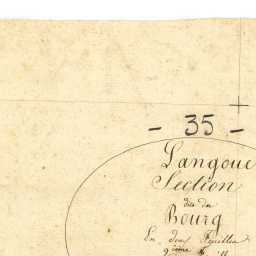 - 35 -
Langoue
Section
dite du
Bourg
En deux Feuilles
2ème F